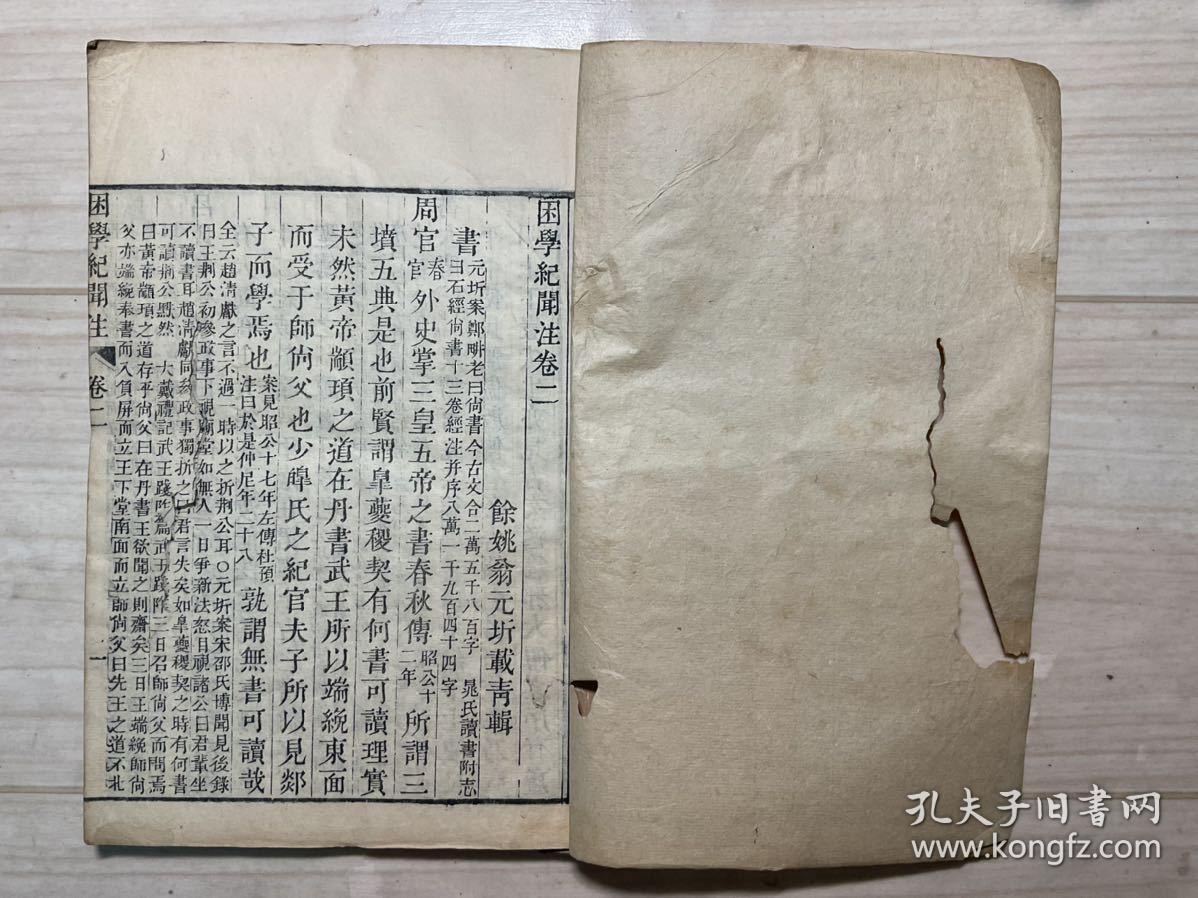 困學紀聞注卷二
餘姚翁元圻載青輯
書元圻案鄭畊老曰尙書今古文合二萬五千八百字 晁氏讀書附志
曰石經尙書十三卷經注并序八萬一千九百四十四字
周官春官外史掌三皇五帝之書春秋傳昭公十二年所謂三
墳五典是也前賢謂臯夔稷契有何書可讀理實
未然黃帝顓頊之道在丹書武王所以端絻東面
而受于師尙父也少皥氏之紀官夫子所以見郯
子而學焉也案見昭公十七年左傳杜預注曰於是仲尼年二十八孰謂無書可讀哉
全云趙淸獻之言不過一時以之折荆公耳○元圻案宋邵氏博聞見後錄
曰王荆公初參政事下視廟堂如無人一日爭新法怒目視諸公曰君輩坐
不讀書耳趙淸獻同參政事獨折之曰君言失矣如臯夔稷契之時有何書
可讀荆公默然 大戴禮記武王踐阼篇武王踐阼三日召師尙父而問焉
曰黃帝顓頊之道存乎尙父曰在丹書王欲聞之則齋矣三日王端絻師尙
父亦端絻奉書而入負屏而立王下堂南面而立師尙父曰先王之道不北
困學紀聞注 卷二 一
孔夫子旧书网
www.kongfz.com